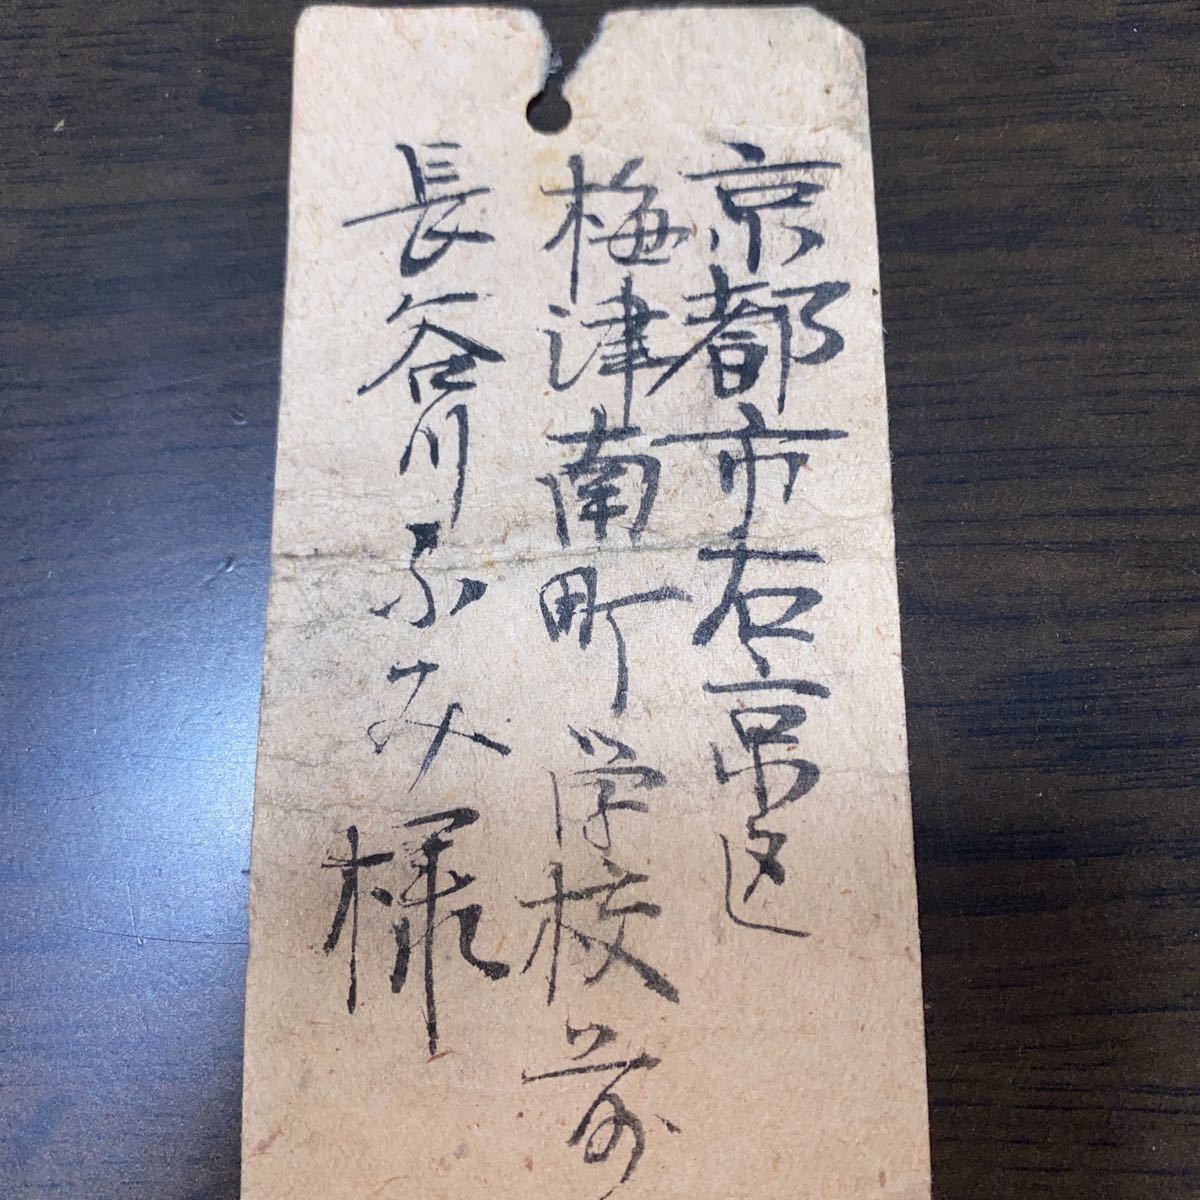 京都市右京区
梅津南町学校前
長谷川ふみ様